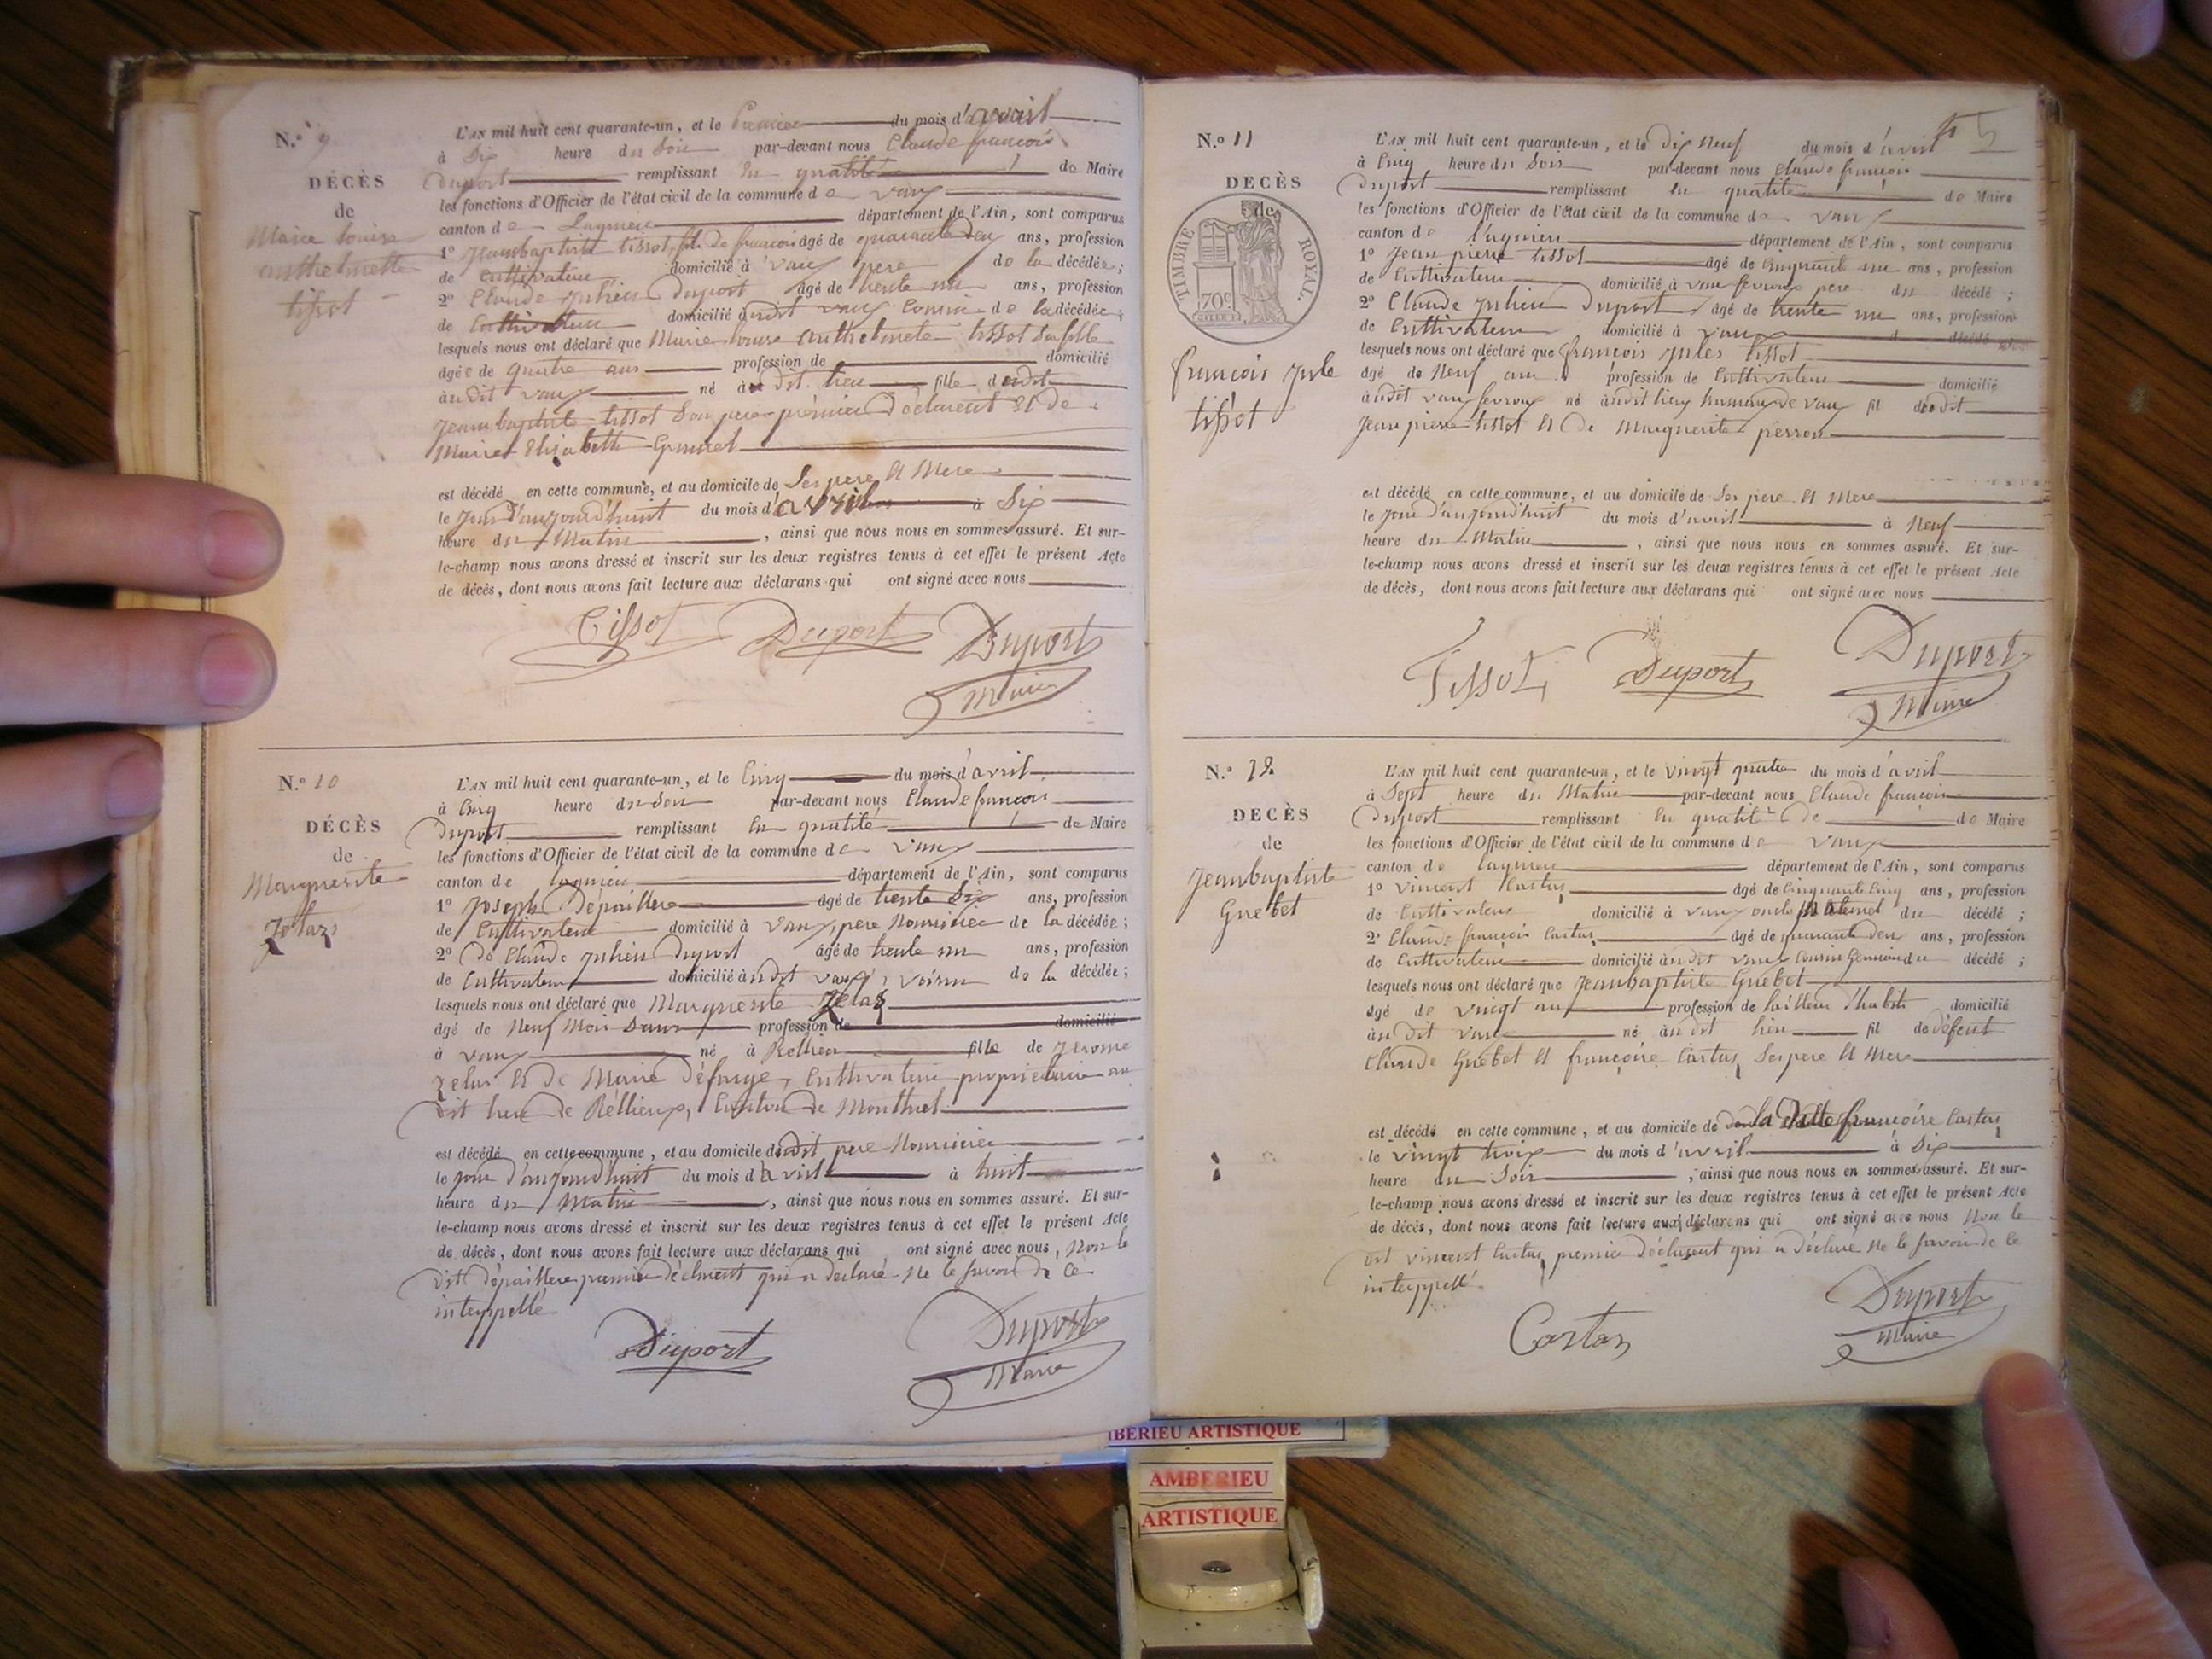 N.º 9
DÉCÈS
de
Marie Louise
anthelmette
tissot
L'AN mil huit cent quarante-un, et le Premier du mois d'avril
à Six heure du Soir par-devant nous Claude françois
Duport remplissant En qualité de Maire
les fonctions d'Officier de l'état civil de la commune de vaux
canton de Lagnieu département de l'Ain, sont comparus
1º Jeanbaptiste tissot, fils de françois âgé de quarante deux ans, profession
de Cultivateur domicilié à vaux pere de la décédée;
2º Claude julien Duport âgé de trente un ans, profession
de Cultivateur domicilié audit vaux Cousin de la décédée;
lesquels nous ont déclaré que Marie louise anthelmete tissot Sa fille
âgée de quatre ans profession de domicilié
audit vaux né au dit lieu fille dudit
Jeanbaptiste tissot Son pere premier Déclarent Et de
Marie Elisabeth
est décédé en cette commune, et au domicile de Ses pere Et Mere
le Jour d'aujourd'huit du mois d'avril à Six
heure du Matin, ainsi que nous nous en sommes assuré. Et sur-
le-champ nous avons dressé et inscrit sur les deux registres tenus à cet effet le présent Acte
de décès, dont nous avons fait lecture aux déclarans qui ont signé avec nous
Tissot Duport Duport
Maire
N.º 10
DÉCÈS
de
Marguerite
Zelaz
L'AN mil huit cent quarante-un, et le Cinq du mois d'avril
à Cinq heure du Soir par-devant nous Claude françois
Duport remplissant En qualité de Maire
les fonctions d'Officier de l'état civil de la commune de vaux
canton de lagnieu département de l'Ain, sont comparus
1º Joseph Depaillere âgé de trente Six ans, profession
de Cultivateur domicilié à vaux, pere Nouricier de la décédée;
2º de Claude julien Duport âgé de trente un ans, profession
de Cultivateur domicilié audit vaux, voisin de la décédée;
lesquels nous ont déclaré que Marguerite Zelaz
âgé de Neuf Mois profession de domicilié
à vaux né à fille de Jerome
Zelas Et de Marie Défarge, Cultivateur proprietaire au
dit lieu de Réllieux, Canton de Montluel
est décédé en cette commune, et au domicile dudit pere Nouricier
le jour d'aujourd'huit du mois d'avril à huit
heure du Matin, ainsi que nous nous en sommes assuré. Et sur-
le-champ nous avons dressé et inscrit sur les deux registres tenus à cet effet le présent Acte
de décès, dont nous avons fait lecture aux déclarans qui ont signé avec nous, Non le
dit dépaillere premier déclarent qui a déclaré Ne le savoir de Ce
interppellé
Duport Duport
Maire
5
N.º 11
DECÈS
de
TIMBRE ROYAL.
70c
françois jule
tissot
L'AN mil huit cent quarante-un, et le Dix Neuf du mois d'avril
à Cinq heure du Soir par-devant nous Claude françois
Duport remplissant En qualité de Maire
les fonctions d'Officier de l'état civil de la commune de vaux
canton de Lagnieu département de l'Ain, sont comparus
1º Jean pierre tissot âgé de Cinquante un ans, profession
de Cultivateur domicilié à vaux fevroux pere du décédé;
2º Claude julien Duport âgé de trente un ans, profession
de Cultivateur domicilié à vaux
lesquels nous ont déclaré que françois jules tissot
âgé de Neuf ans profession de Cultivateur domicilié
audit vaux fevroux né audit lieu hameau de vaux fil dudit
Jean pierre tissot Et De Marguerite perron
est décédé en cette commune, et au domicile de Ses pere Et Mere
le Jour d'aujourd'huit du mois d'avril à Neuf
heure du Matin, ainsi que nous nous en sommes assuré. Et sur-
le-champ nous avons dressé et inscrit sur les deux registres tenus à cet effet le présent Acte
de décès, dont nous avons fait lecture aux déclarans qui ont signé avec nous
Tissot, Duport Duport
Maire
N.º 12
DECÈS
de
Jeanbaptiste
Guebet
L'AN mil huit cent quarante-un, et le vingt quatre du mois d'avril
à Sept heure du Matin par-devant nous Claude françois
Duport remplissant En qualité de de Maire
les fonctions d'Officier de l'état civil de la commune de vaux
canton de lagnieu département de l'Ain, sont comparus
1º vincent Castaz âgé de Cinquante Cinq ans, profession
de Cultivateur domicilié à vaux oncle Maternel du décédé;
2º Claude françois Castaz âgé de quarante deux ans, profession
de Cultivateur domicilié audit vaux Cousin Germain du décédé;
lesquels nous ont déclaré que Jeanbaptiste Guebet
âgé de vingt an profession de tailleur d'habit domicilié
au dit vaux né au dit lieu fil de défent
Claude Guebet Et françoise Castaz Ses pere Et Mere
est décédé en cette commune, et au domicile de la ditte françoise Castaz
le vingt trois du mois d'avril à Six
heure du Soir, ainsi que nous nous en sommes assuré. Et sur-
le-champ nous avons dressé et inscrit sur les deux registres tenus à cet effet le présent Acte
de décès, dont nous avons fait lecture aux déclarans qui ont signé avec nous Non le
dit vincent Castaz premier déclarent qui a déclaré Ne le savoir de Ce
interppellé
Castaz Duport
Maire
BERIEU ARTISTIQUE
AMBERIEU
ARTISTIQUE